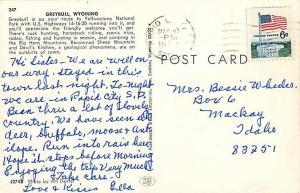 247
GREYBULL, WYOMING
Greybull is on your route to Yellowstone National
Park with U.S. Highways 14-16-20 running into it, and
you'll appreciate the friendly welcome you'll get
There's rock hunting, horseback riding, scenic trips,
rodeo, fishing and hunting in season, and camping in
the Big Horn Mountains. Renowned Sheep Mountain
and Devil's Kitchen, a geological phenomenon, are on
the outskirts of town.
Hi Sister - We are well on
our way, stayed in this
town last night. To-night
we are in Rapid City S.D.
Been thru a lot of lovely
country. We have seen elk
deer, buffaloes, moose and
Hope it stops before morning
Enjoying the trip Very much
Take care.
Love & Kisses Ella
J2743
Photo by
POST CARD
6¢
Mrs. Bessie Wheeler
Box 6
Mackay
Idaho
83251